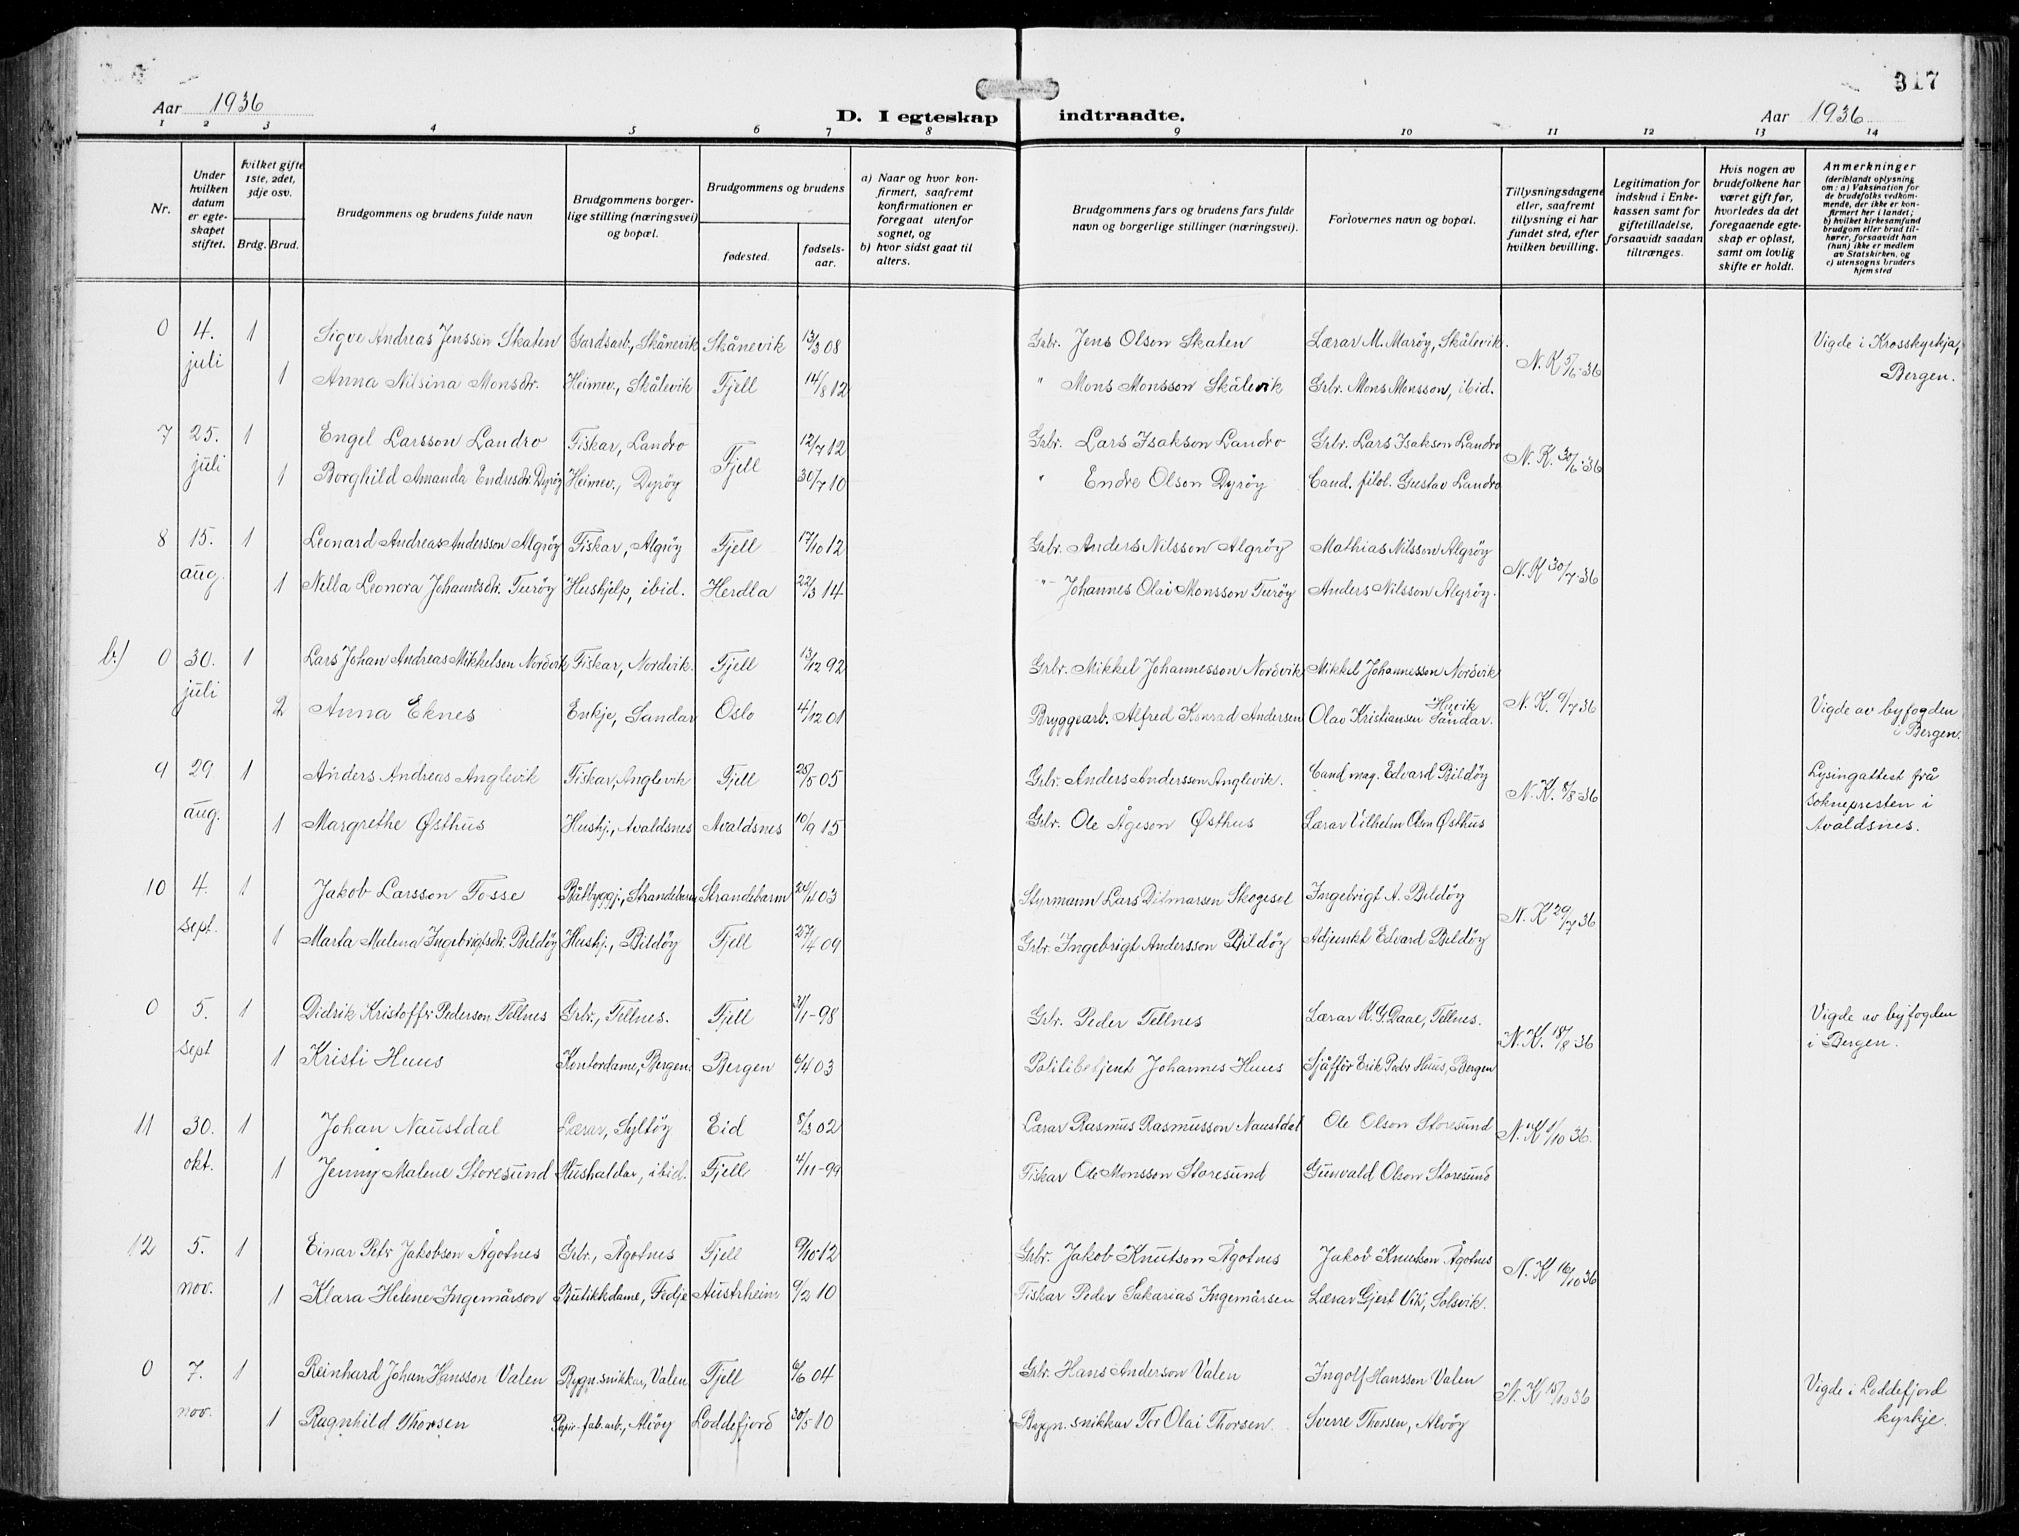 317
Aar 1936
D. I egteskap indtraadte.
Aar 1936
1 2 3 4 5 6 7 8 9 10 11 12 13 14
Nr.
Under hvilken datum er egteskapet stiftet.
Hvilket gifte 1ste, 2det, 3dje osv.
Brdg. Brud.
Brudgommens og brudens fulde navn
Brudgommens borgerlige stilling (næringsvei) og bopæl.
Brudgommens og brudens
fødested.
fødselsaar.
a) Naar og hvor konfirmert, saafremt konfirmationen er foregaat utenfor sognet, og
b) hvor sidst gaat til alters.
Brudgommens fars og brudens fars fulde navn og borgerlige stillinger (næringsvei).
Forlovernes navn og bopæl.
Tillysningsdagene eller, saafremt tillysning ei har fundet sted, efter hvilken bevilling.
Legitimation for indskud i Enkekassen samt for giftetilladelse, forsaavidt saadan tiltrænges.
Hvis nogen av brudefolkene har været gift før, hvorledes da det foregaaende egteskap er opløst, samt om lovlig skifte er holdt.
Anmerkninger (deriblandt oplysning om: a) Vaksination for de brudefolks vedkommende, der ikke er konfirmert her i landet; b) hvilket kirkesamfund brudgom eller brud tilhører, forsaavidt han (hun) ikke er medlem av Statskirken, og c) utensogns bruders hjemsted
0 4. juli 1 Sigve Andreas Jenssen Skaten Gardsarb., Skånevik Skånevik 13/3 08 Grbr. Jens Olson Skaten Lærar M. Marøy, Skålevik. N. K. 5/6-36 Vigde i Krosskyrkja, Bergen.
1 Anna Nilsina Monsdtr. Heimev., Skålevik Fjell 14/8 12 " Mons Monsson Skålevik Grbr. Mons Monsson, ibid.
7 25. juli 1 Engel Larsson Landro Fiskar, Landro Fjell 12/7 12 Grbr. Lars Isakson Landro Grbr. Lars Isakson Landro N. K. 30/6-36
1 Borghild Amanda Endresdtr. Dyrøy Heimev., Dyrøy 30/7 10 " Endre Olson Dyrøy Cand. filol. Gustav Landro
8 15. aug. 1 Leonard Andreas Andersson Algrøy Fiskar, Algrøy Fjell 17/10 12 Grbr. Anders Nilsson Algrøy Mathias Nilsson Algrøy N. K 30/7-36
1 Nella Leonora Johannesdtr. Turøy Hushjelp, ibid. Herdla 22/3 14 " Johannes Olai Monsson Turøy Anders Nilsson Algrøy.
b.) 0 30. juli 1 Lars Johan Andreas Mikkelsen Nordvik Fiskar, Nordvik. Fjell 13/12 92 Grbr. Mikkel Johannesson Nordvik Mikkel Johannesson Nordvik N. K. 9/7 36
2 Anna Eknes Enkje, Sandar Oslo 4/12 01 Bryggearb. Alfred Konrad Andersen Olav Kristiansen Sandar. Vigde av byfogden i Bergen.
9 29 aug. 1 Anders Andreas Anglevik Fiskar, Anglevik Fjell 28/5 05 Grbr. Anders Andersson Anglevik. Cand mag. Edvard Bildøy N. K. 8/8-36 Lysingattest frå soknepresten i Avaldsnes.
1 Margrethe Østhus Hushj., Avaldsnes Avaldsnes 10/9 15 Grbr. Ole Ågeson Østhus Lærar Vilhelm Olson Østhus
10 4. sept. 1 Jakob Larsson Fosse Båtbyggj., Strandebarm Strandebarm 24/1 03 Styrmann Lars Ditmarsen Skogesel Ingebrigt A. Bildøy N. K 29/7 36
1 Marta Malena Ingebrigtsdtr. Bildøy Hushj., Bildøy Fjell 27/4 09 Grbr. Ingebrigt Andersson Bildøy Adjunkt Edvard Bildøy
0 5. sept 1 Didrik Kristoffer Pederson Tellnes Grbr., Tellnes. Fjell 31/1-98 Grbr. Peder Tellnes Lærar K. G. Daae, Tellnes. N. K. 18/8 36 Vigde av byfogden i Bergen.
1 Kristi Huus Kontordame, Bergen. Bergen 6/4 03 Politibetjent Johannes Huus Sjåffør Erik Pedr Huus, Bergen
11 30. okt. 1 Johan Naustdal Lærar, Syltøy Eid 8/3 02 Lærar Rasmus Rasmusson Naustdal Ole Olson Storesund N. K 1/10 36.
1 Jenny Malene Storesund Hushaldar, ibid. Fjell 4/11-99 Fiskar Ole Monsson Storesund Gunvald Olson Storesund
12 5. nov. 1 Einar Petr Jakobson Ågotnes Grbr., Ågotnes Fjell 9/10 12 Grbr. Jakob Knutson Ågotnes Jakob Knutson Ågotnes N. K 16/10 36
1 Klara Helene Ingemårson Butikkdame, Fedje Austrheim 9/2 10 Fiskar Peder Sakarias Ingemårsen Lærar Gjert Vik, Solsvik.
0 7. nov. 1 Reinhard Johan Hansson Valen Bygn.snikkar, Valen Fjell 6/6 04 Grbr. Hans Anderson Valen Ingolf Hansson Valen N. K 15/10 36 Vigde i Loddefjord kyrkje.
1 Ragnhild Thorsen Papir-fab.arb., Alvøy Loddefjord 30/5 10 Bygn. snikkar Tor Olai Thorsen. Sverre Thorsen, Alvøy